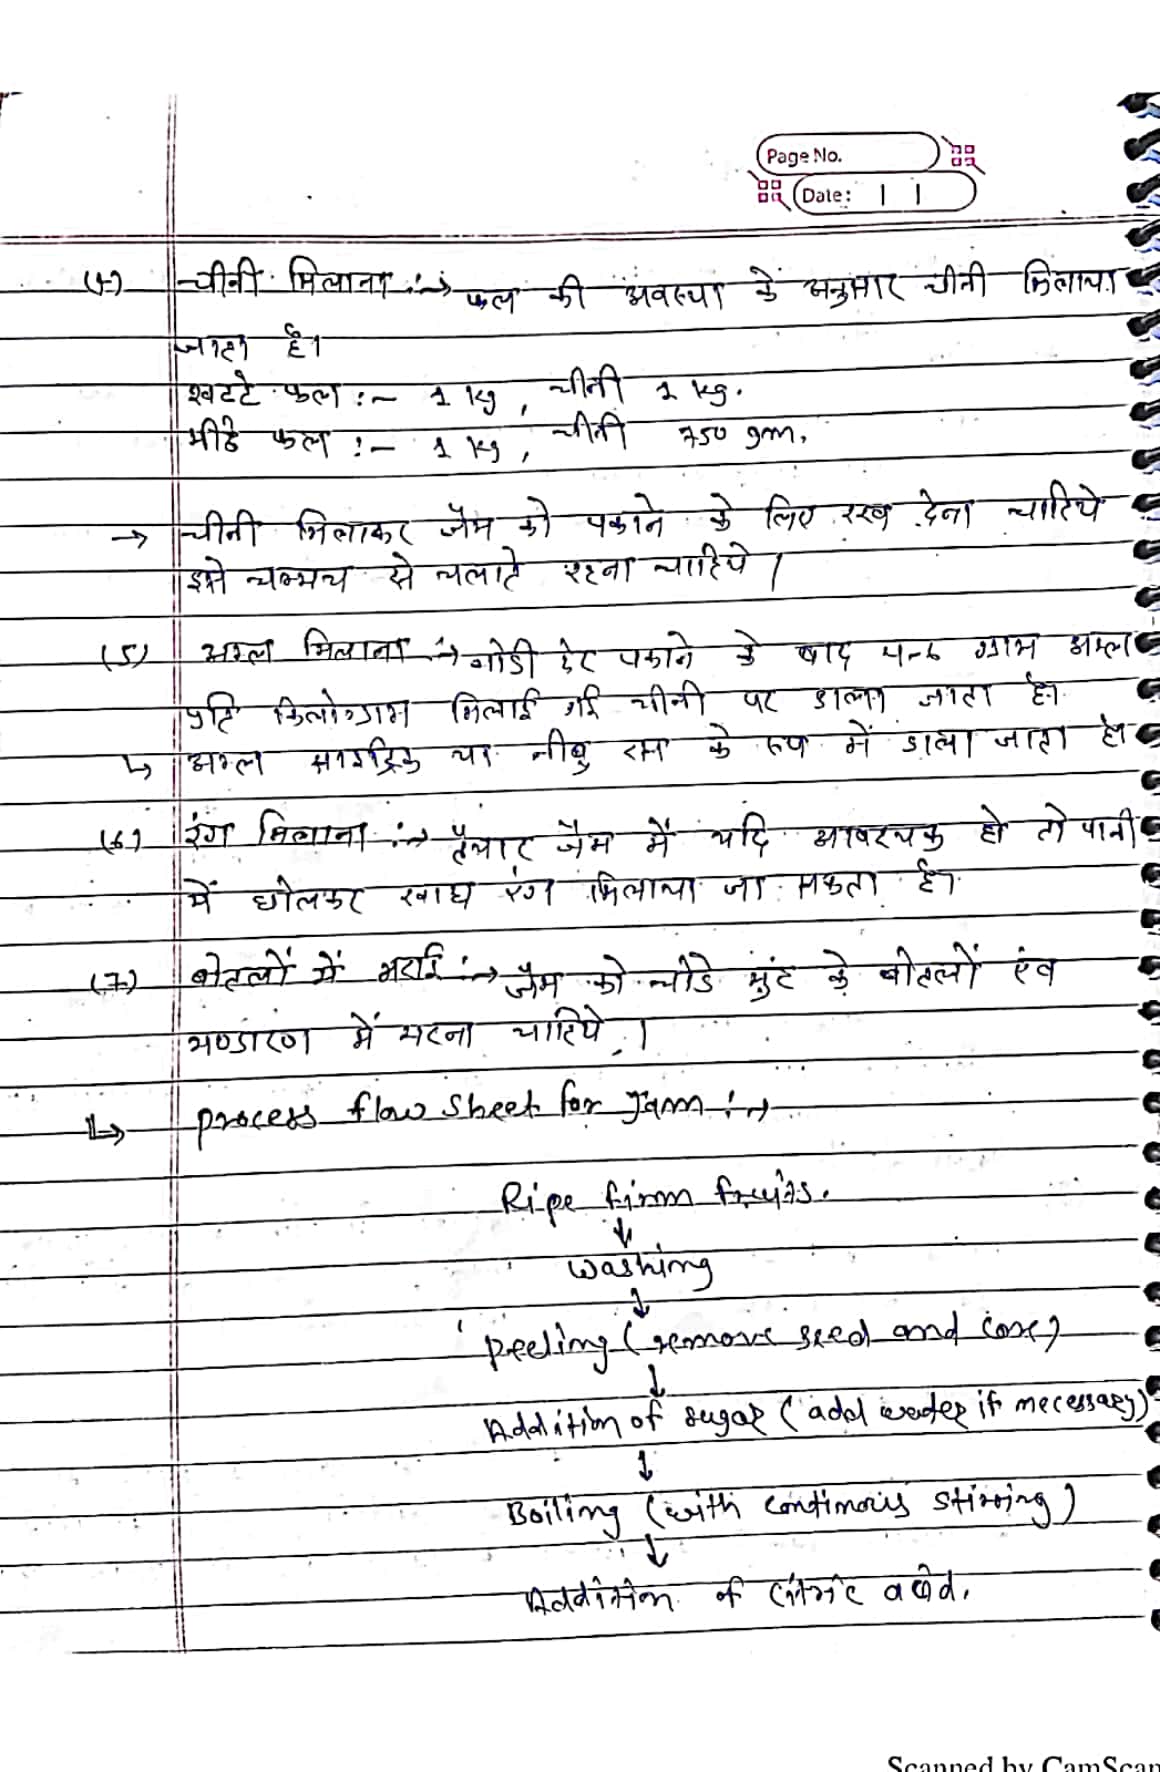 Page No.
Date: | |
(4) चीनी मिलाना :→ फल की अवस्था के अनुसार चीनी मिलाया
जाता है।
खट्टे फल :- 1 kg, चीनी 1 kg.
मीठे फल :- 1 kg, चीनी 750 gm.
→ चीनी मिलाकर जैम को पकाने के लिए रख देना चाहिये
इसे चम्मच से चलाते रहना चाहिये।
(5) अम्ल मिलाना :→ थोडी देर पकाने के बाद ग्राम अम्ल
प्रति किलोग्राम मिलाई गई चीनी पर डाला जाता है।
↳ अम्ल साइट्रिक या नीबु रस के रूप में डाला जाता है
(6) रंग मिलाना :→ तैयार जैम में यदि आवश्यक हो तो पानी
में घोलकर खाद्य रंग मिलाया जा सकता है।
(7) बोतलों में भराई :→ जैम को चौडे मुंह के बोतलों एंव
भण्डारण में भरना चाहिये।
↳ process flow sheet for Jam :→
Ripe firm fruits.
↓
washing
↓
peeling (remove seed and core)
↓
Addition of sugar (add water if necessary)
↓
Boiling (with continous stirring)
↓
Addition of citric acid.
Scanned by CamScan